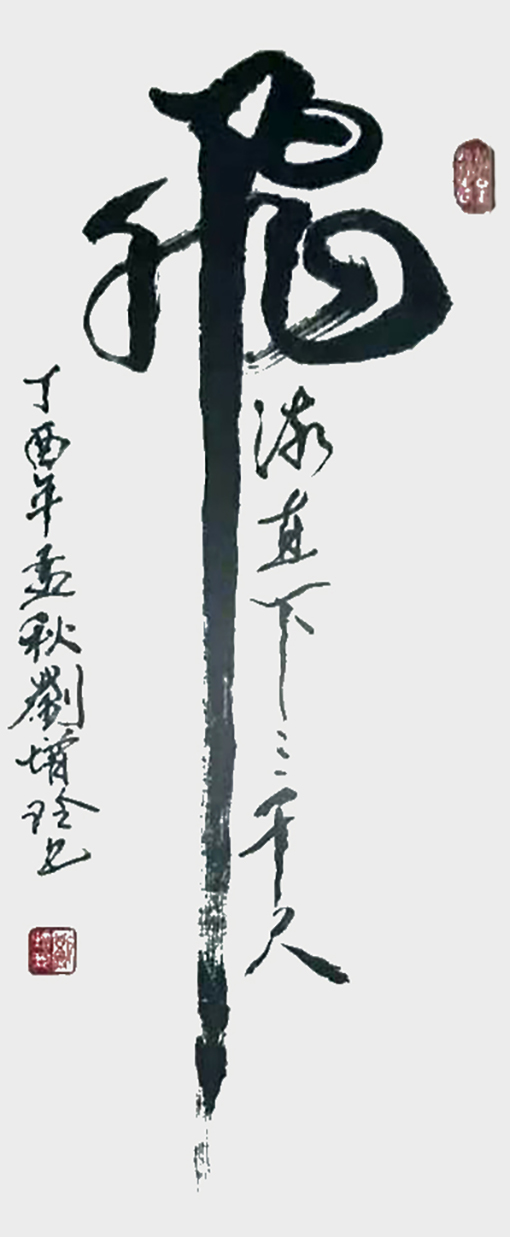 飛
流直下三千尺
丁酉年孟秋劉增珍书